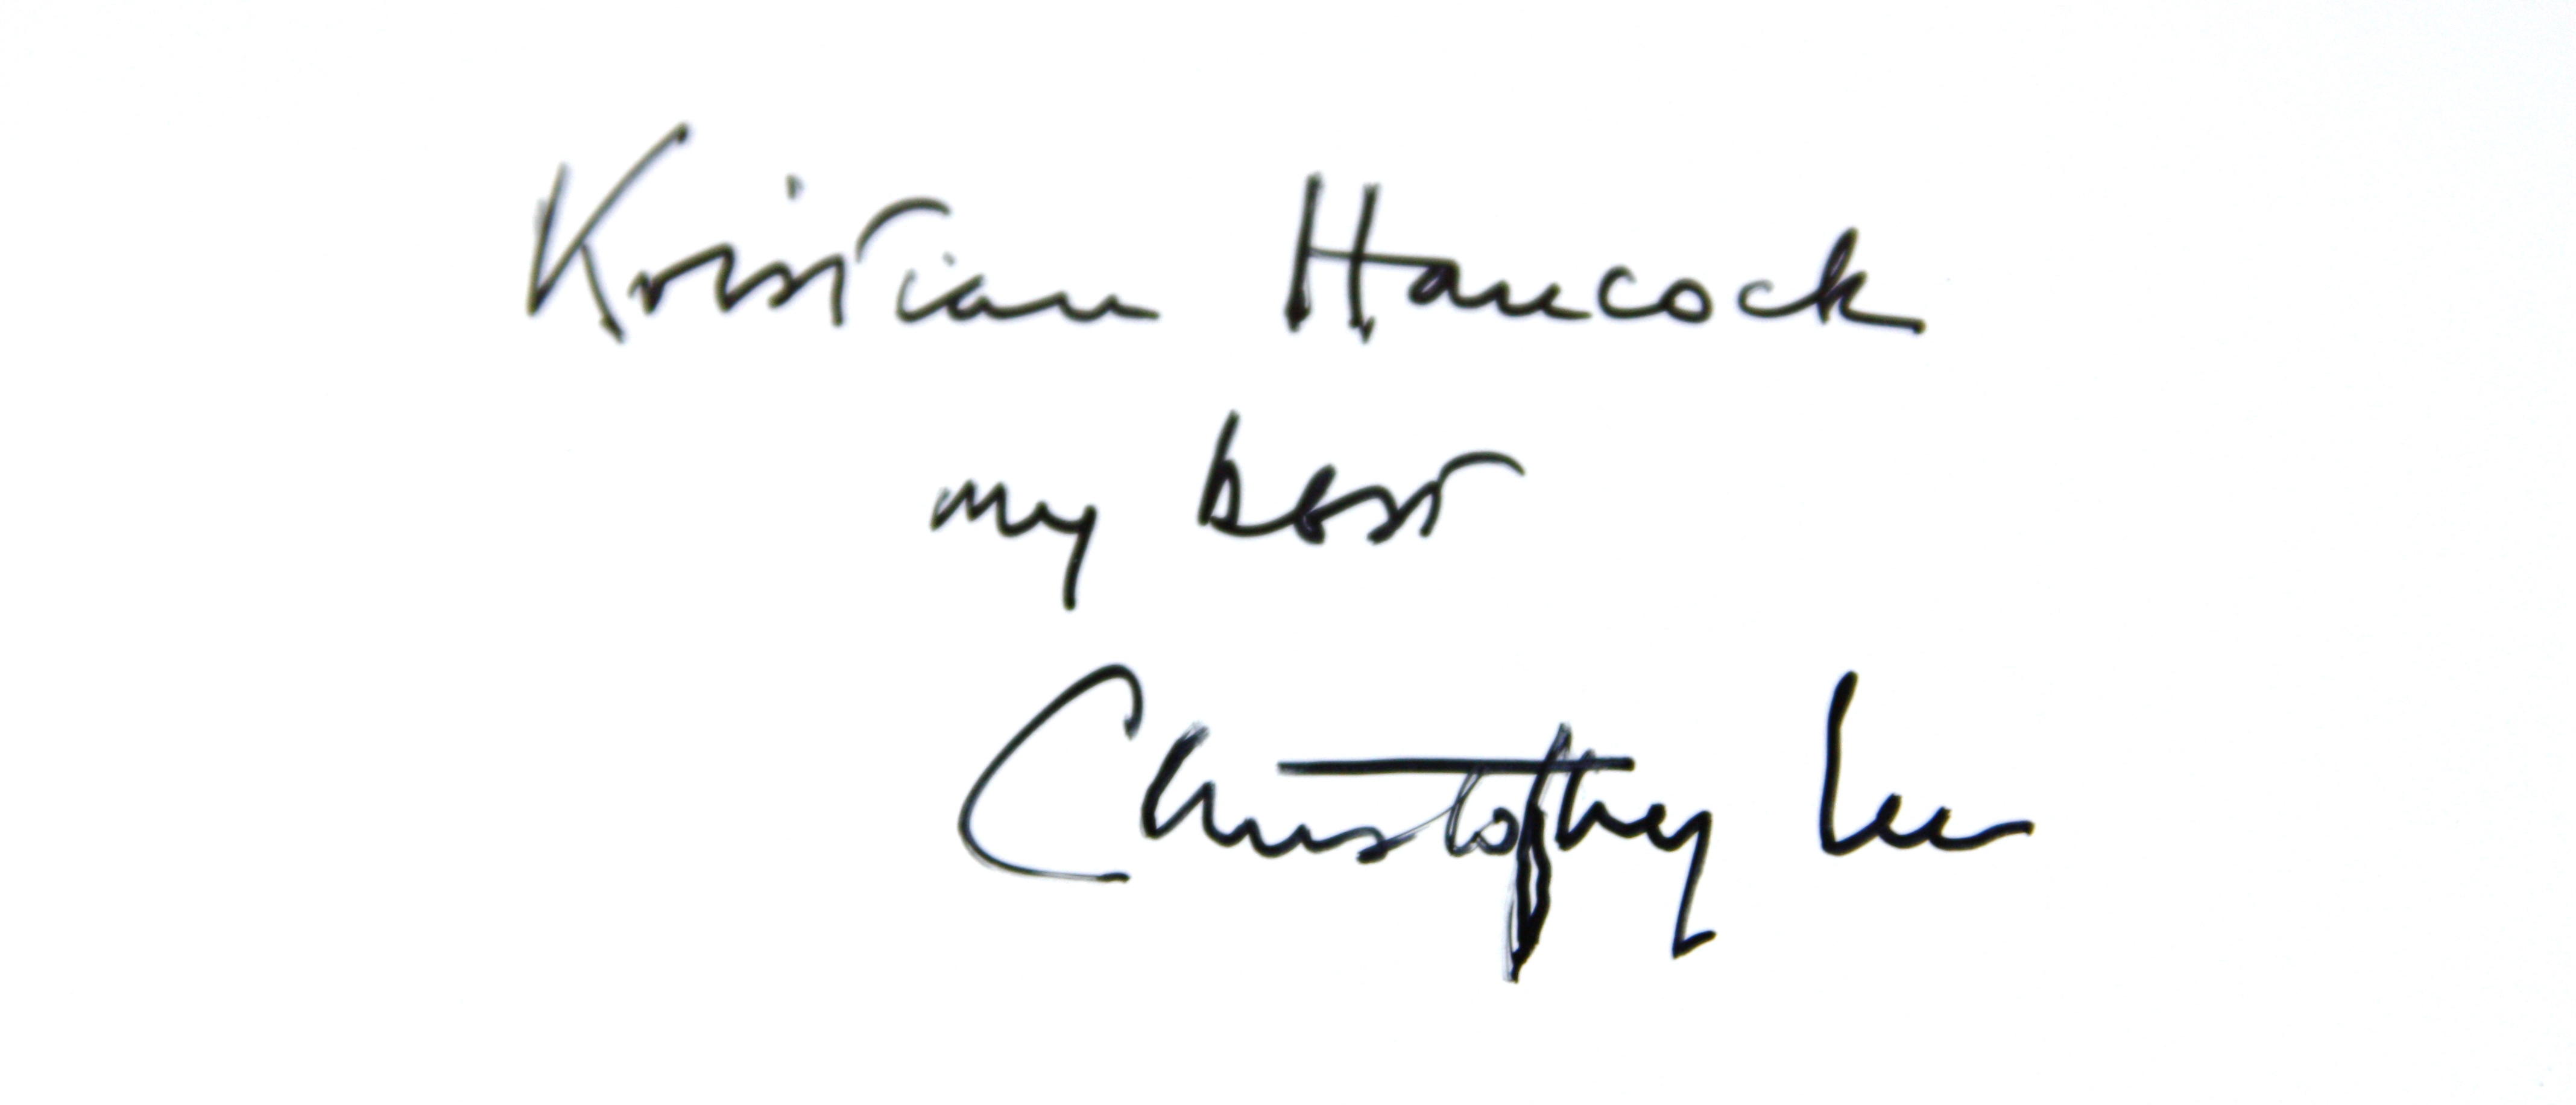 Kristian Hancock
my best
Christopher Lee